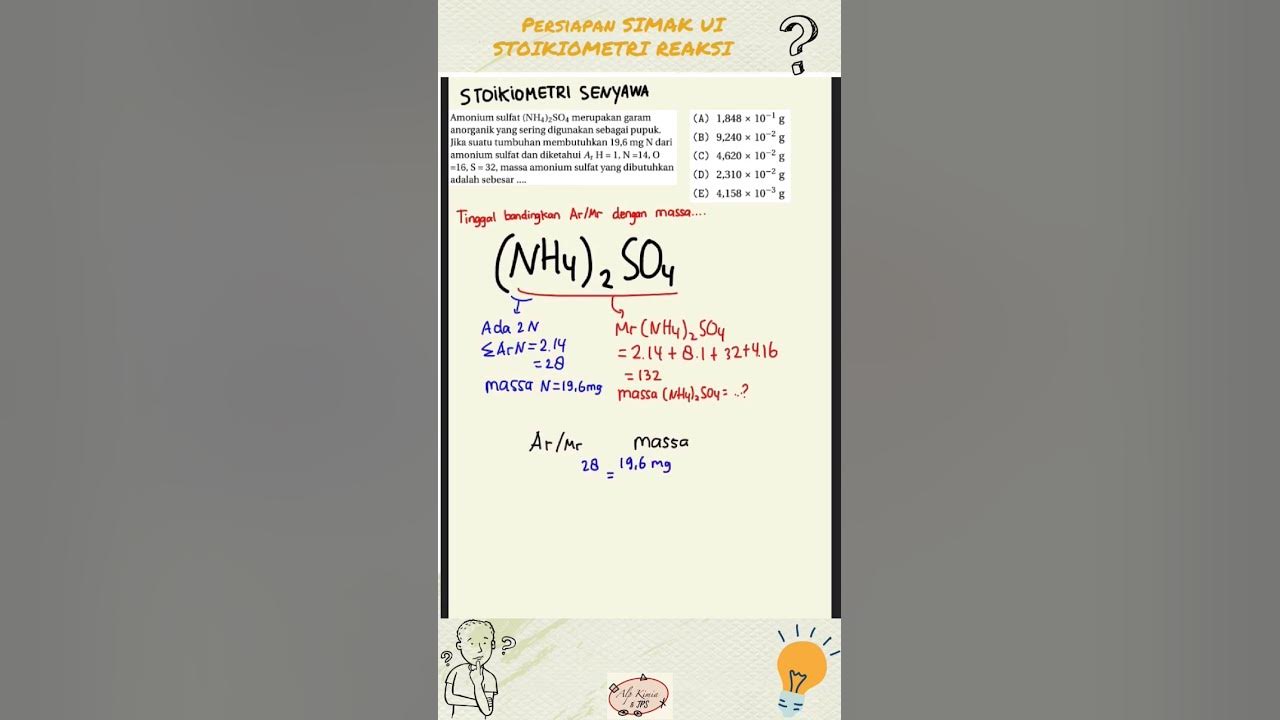 Persiapan SIMAK UI
STOIKIOMETRI REAKSI
?
STOIKIOMETRI SENYAWA
Amonium sulfat (NH₄)₂SO₄ merupakan garam
anorganik yang sering digunakan sebagai pupuk.
Jika suatu tumbuhan membutuhkan 19,6 mg N dari
amonium sulfat dan diketahui Aᵣ H = 1, N =14, O
=16, S = 32, massa amonium sulfat yang dibutuhkan
adalah sebesar ....
(A) 1,848 × 10⁻¹ g
(B) 9,240 × 10⁻² g
(C) 4,620 × 10⁻² g
(D) 2,310 × 10⁻² g
(E) 4,158 × 10⁻³ g
Tinggal bandingkan Ar/Mr dengan massa....
(NH4)₂ SO₄
Ada 2 N
ΣArN = 2.14
= 28
massa N = 19,6 mg
Mr (NH4)₂ SO4
= 2.14 + 8.1 + 32 + 4.16
= 132
massa (NH4)₂ SO4 = ..?
Ar/Mr massa
28 = 19,6 mg
? ?
Alp Kimia
& TPS